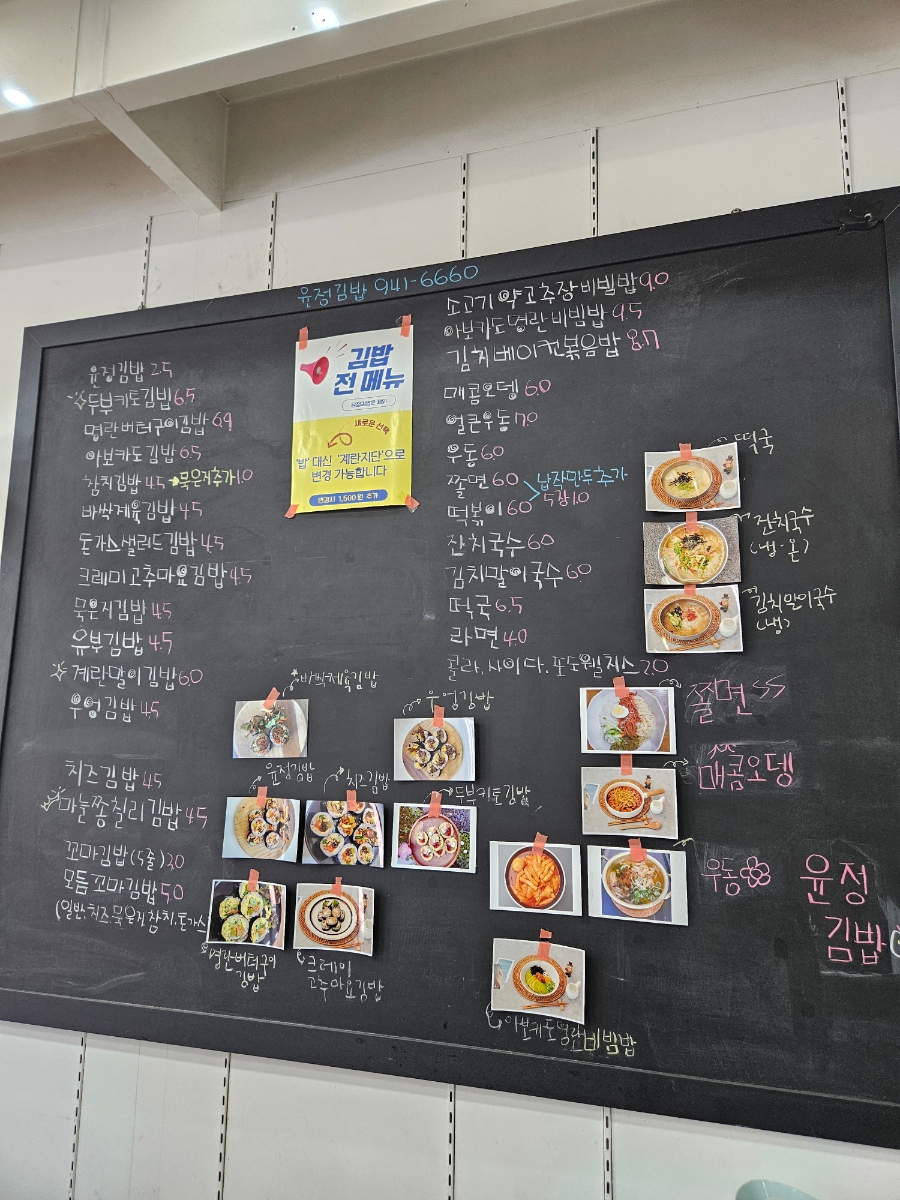 윤정김밥 941-6660
윤정김밥 2.5
두부키토김밥 6.5
명란버터구이김밥 6.9
아보카도김밥 6.5
참치김밥 4.5 → 묵은지추가 1.0
바싹제육김밥 4.5
돈가스샐러드김밥 4.5
크레미고추마요김밥 4.5
묵은지김밥 4.5
유부김밥 4.5
계란말이김밥 6.0
우엉김밥 4.5
치즈김밥 4.5
마늘쫑칠리김밥 4.5
꼬마김밥(5줄) 3.0
모듬꼬마김밥 5.0
(일반, 치즈, 묵은지, 참치, 돈가스
김밥
전 메뉴
새로운 선택
'밥' 대신 '계란지단'으로
변경 가능합니다
변경시 1,500원 추가
소고기 약고추장비빔밥 9.0
아보카도명란비빔밥 9.5
김치베이컨볶음밥 8.7
매콤오뎅 6.0
얼큰우동 7.0
우동 6.0
쫄면 6.0
떡볶이 6.0
납작만두추가
5장 1.0
잔치국수 6.0
김치말이국수 6.0
떡국 6.5
라면 4.0
콜라, 사이다, 포도웰치스 2.0
떡국
잔치국수
(냉·온)
김치말이국수
(냉)
바싹제육김밥
우엉김밥
쫄면
윤정김밥
치즈김밥
두부키토김밥
매콤오뎅
우동
윤정
김밥
명란버터구이
김밥
크레미
고추마요김밥
아보카도명란비빔밥